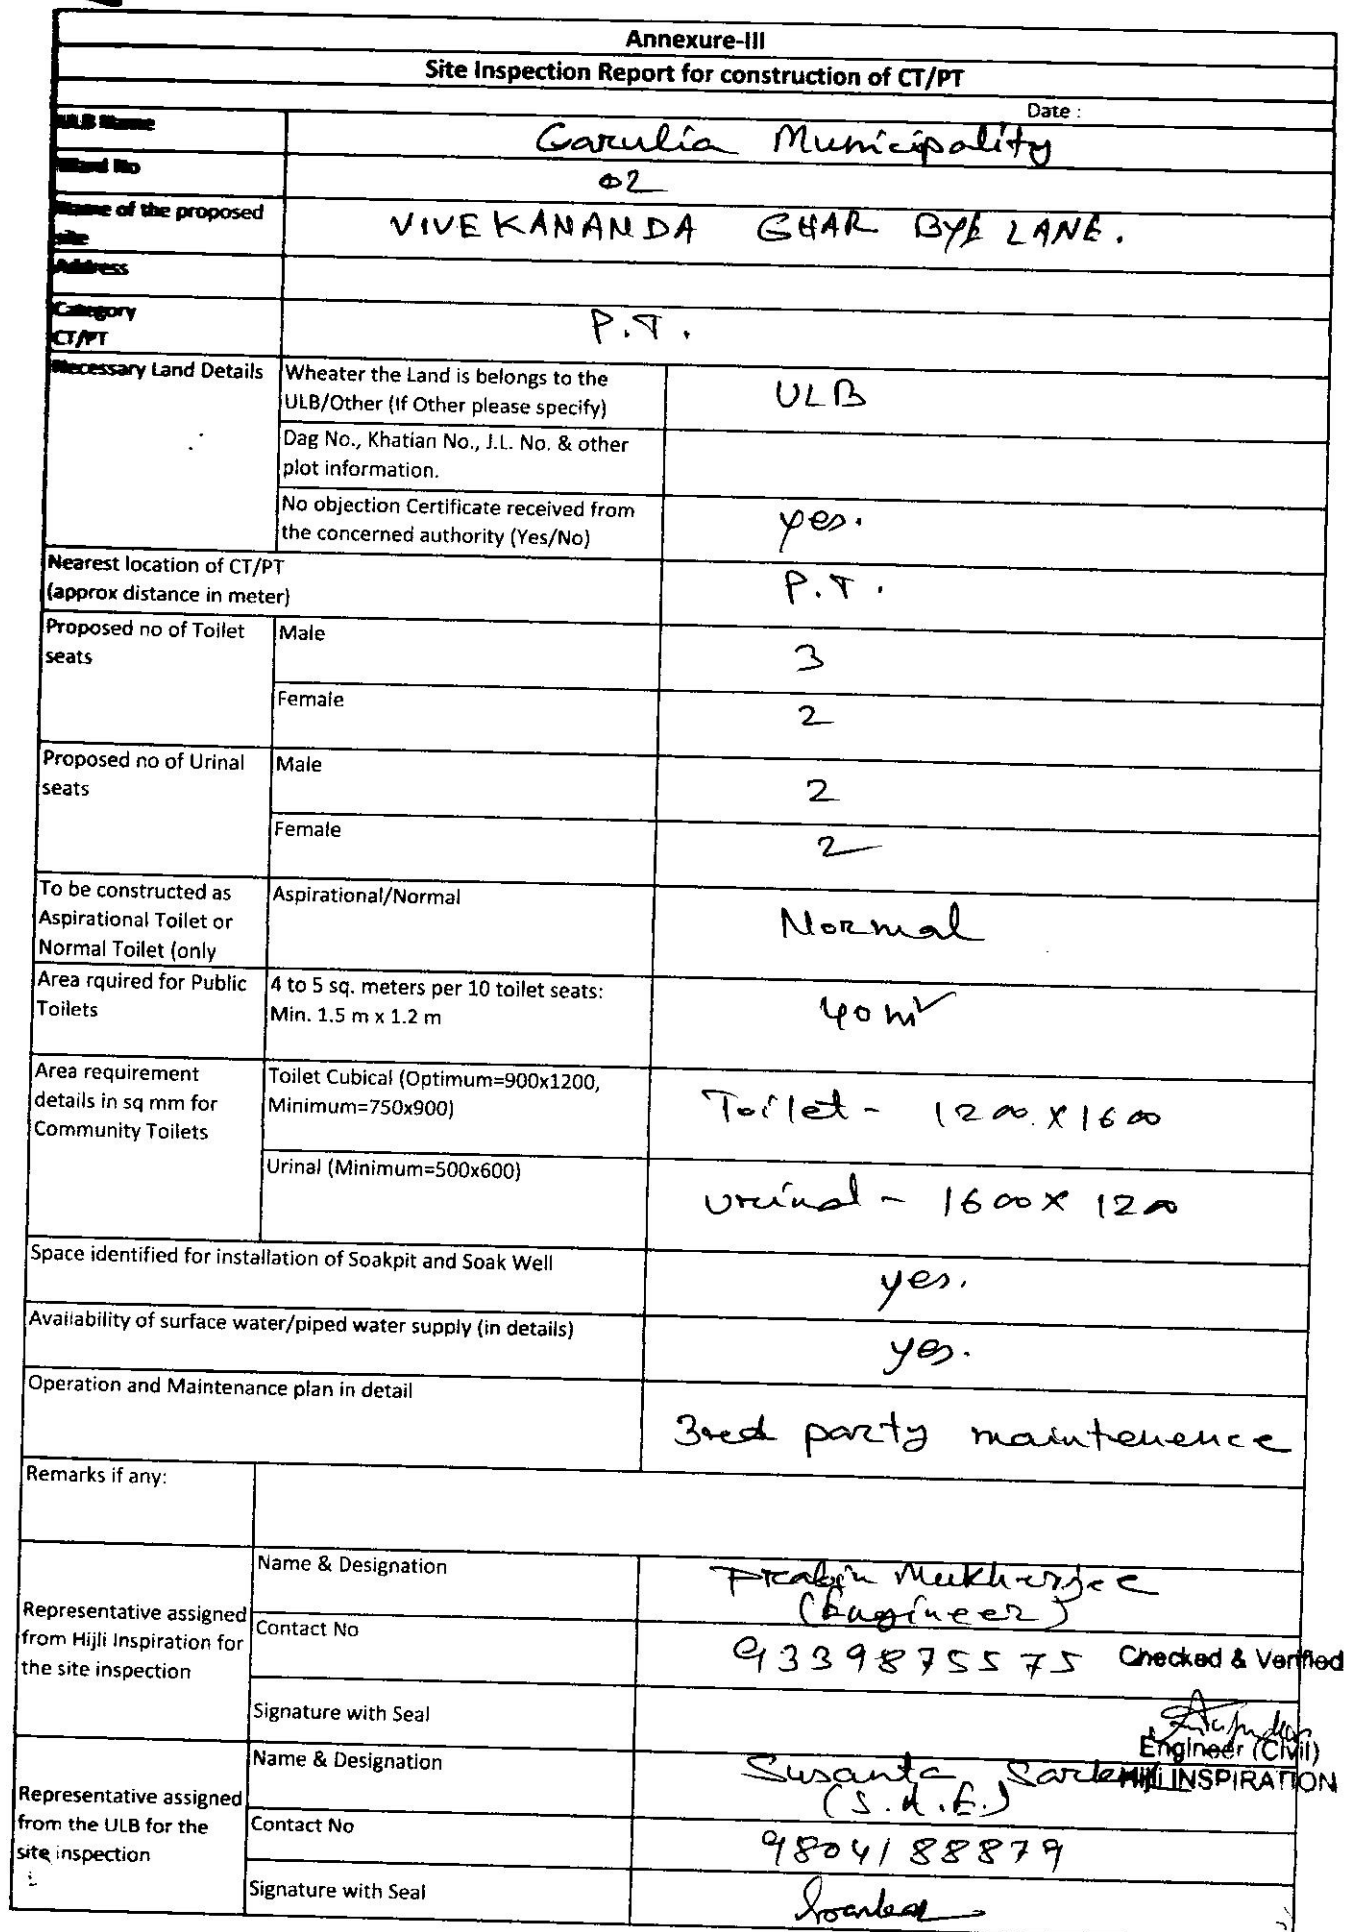 Annexure-III
Site Inspection Report for construction of CT/PT
Date :
ULB Name
Garulia Municipality
Ward No
02
Name of the proposed
site
VIVEKANANDA GHAR BYE LANE.
Address
Category
CT/PT
P.T.
Necessary Land Details
Wheater the Land is belongs to the
ULB/Other (If Other please specify)
ULB
Dag No., Khatian No., J.L. No. & other
plot information.
No objection Certificate received from
the concerned authority (Yes/No)
yes.
Nearest location of CT/PT
(approx distance in meter)
P.T.
Proposed no of Toilet
seats
Male
3
Female
2
Proposed no of Urinal
seats
Male
2
Female
2
To be constructed as
Aspirational Toilet or
Normal Toilet (only
Aspirational/Normal
Normal
Area rquired for Public
Toilets
4 to 5 sq. meters per 10 toilet seats:
Min. 1.5 m x 1.2 m
40 m²
Area requirement
details in sq mm for
Community Toilets
Toilet Cubical (Optimum=900x1200,
Minimum=750x900)
Toilet - 1200 x 1600
Urinal (Minimum=500x600)
Urinal - 1600 x 1200
Space identified for installation of Soakpit and Soak Well
yes.
Availability of surface water/piped water supply (in details)
yes.
Operation and Maintenance plan in detail
3red party maintenence
Remarks if any:
Representative assigned
from Hijli Inspiration for
the site inspection
Name & Designation
Mukherjee
(Engineer)
Contact No
9339875575
Checked & Verified
Signature with Seal
Engineer (Civil)
Hijli INSPIRATION
Representative assigned
from the ULB for the
site inspection
Name & Designation
Susanta
Contact No
9804188879
Signature with Seal